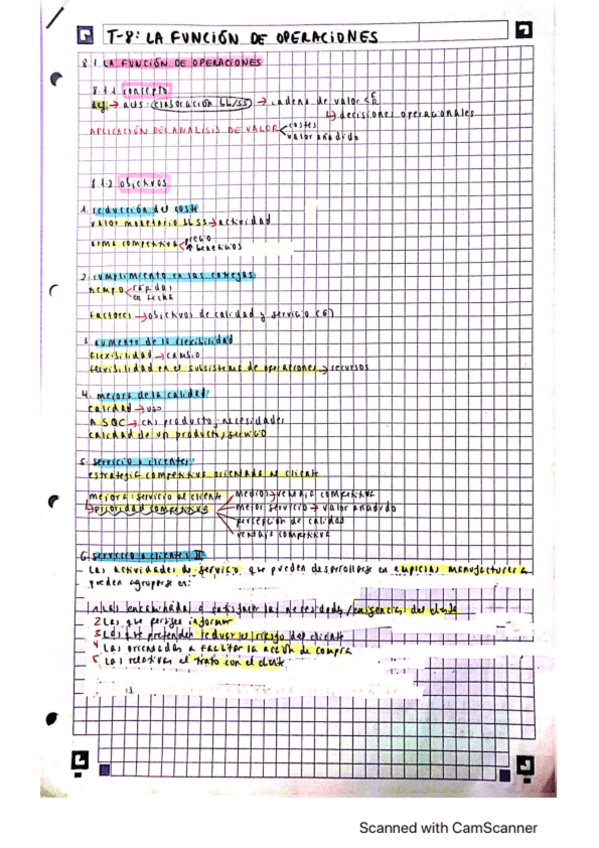 T-8: LA FUNCIÓN DE OPERACIONES
8.1 LA FUNCIÓN DE OPERACIONES
8.1.1 concepto
def. → acts. elaboración bb/ss → cadena de valor
↳ decisiones operacionales
APLICACIÓN DEL ANALISIS DE VALOR < costes
valor añadido
8.1.2 objetivos
1. reducción del coste
valor monetario bb ss → actividad
arma competitiva < precio
↑ beneficios
2. cumplimiento en las entregas
tiempo < rápidas
en fecha
factores → objetivos de calidad y servicio (6)
3. aumento de la flexibilidad
flexibilidad → cambio
flexibilidad en el subsistema de operaciones → recursos
4. mejora de la calidad
calidad → uso
ASQC → producto, necesidades
calidad de un producto, servicio
5. servicio a clientes
estrategia competitiva orientada al cliente
mejora servicio al cliente
medios → ventaja competitiva
↳ prioridad competitiva
mejor servicio → valor añadido
percepción de calidad
ventaja competitiva
6. servicio a clientes II
Las actividades de servicio que pueden desarrollarse en empresas manufactureras
pueden agruparse en:
1 Las encaminadas a satisfacer las necesidades / exigencias del cliente
2 Las que persiguen informar
3 Las que pretenden reducir el riesgo del cliente
4 Las orientadas a facilitar la acción de compra
5. Las relativas al trato con el cliente
Scanned with CamScanner